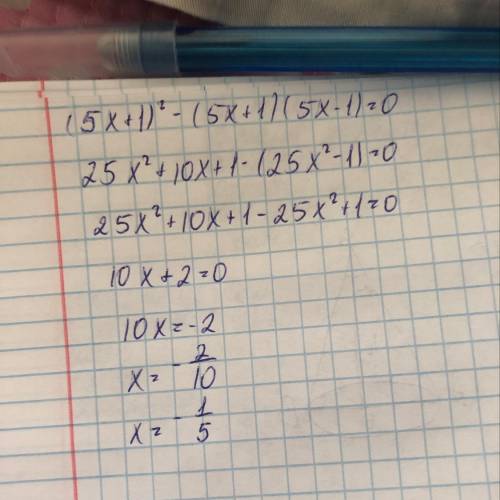 (5x+1)² - (5x+1)(5x-1)=0
25x²+10x+1-(25x²-1)=0
25x²+10x+1-25x²+1=0
10x+2=0
10x=-2
x= -2/10
x= -1/5